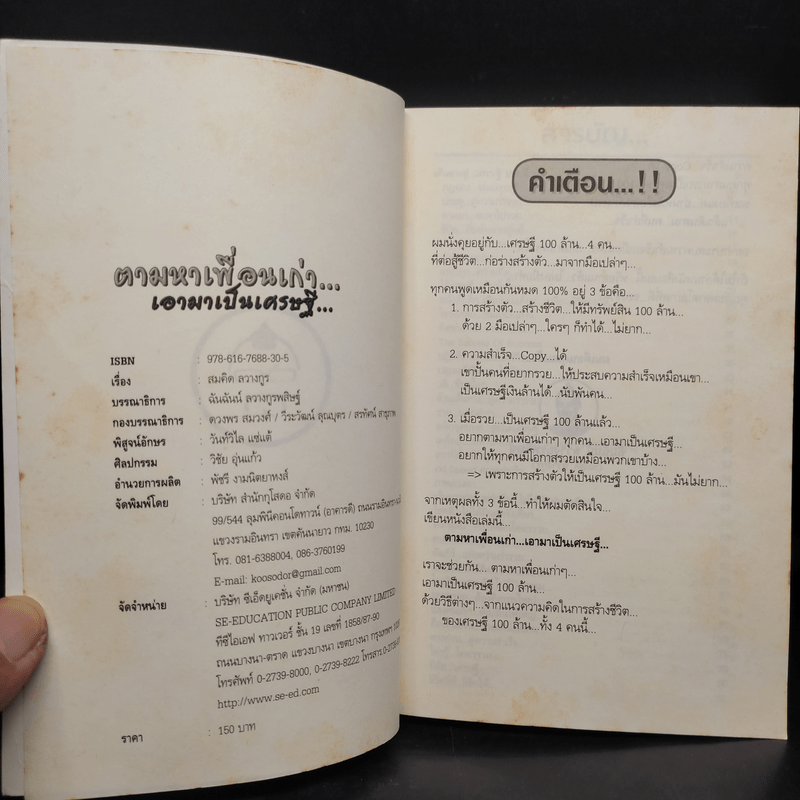 ตามหาเพื่อนเก่า...
เอามาเป็นเศรษฐี...
ISBN : 978-616-7688-30-5
เรื่อง : สมคิด ลวางกูร
บรรณาธิการ : ฉันฉันน์ ลวางกูรพสิษฐ์
กองบรรณาธิการ : ดวงพร สมวงศ์ / วีระวัฒน์ ลุณบุตร / สรทัศน์
พิสูจน์อักษร : วันท์วิไล แซ่แต้
ศิลปกรรม : วิชัย อุ่นแก้ว
อำนวยการผลิต : พัชรี งามนิตยาหงส์
จัดพิมพ์โดย : บริษัท สำนักกูโสดอ จำกัด
99/544 ลุมพินีคอนโดทาวน์ (อาคารดี) ถนนรามอินทรา
แขวงรามอินทรา เขตคันนายาว กทม. 10230
โทร. 081-6388004, 086-3760199
E-mail: koosodor@gmail.com
จัดจำหน่าย : บริษัท ซีเอ็ดยูเคชั่น จำกัด (มหาชน)
SE-EDUCATION PUBLIC COMPANY LIMITED
ทีซีไอเอฟ ทาวเวอร์ ชั้น 19 เลขที่ 1858/87-90
ถนนบางนา-ตราด แขวงบางนา เขตบางนา กรุงเทพฯ
โทรศัพท์ 0-2739-8000, 0-2739-8222 โทรสาร
http://www.se-ed.com
ราคา : 150 บาท
คำเตือน...!!
ผมนั่งคุยอยู่กับ...เศรษฐี 100 ล้าน...4 คน...
ที่ต่อสู้ชีวิต...ก่อร่างสร้างตัว...มาจากมือเปล่าๆ...
ทุกคนพูดเหมือนกันหมด 100% อยู่ 3 ข้อคือ...
1. การสร้างตัว...สร้างชีวิต...ให้มีทรัพย์สิน 100 ล้าน...
ด้วย 2 มือเปล่าๆ...ใครๆ ก็ทำได้...ไม่ยาก...
2. ความสำเร็จ...Copy...ได้
เขาปั้นคนที่อยากรวย...ให้ประสบความสำเร็จเหมือนเขา...
เป็นเศรษฐีเงินล้านได้...นับพันคน...
3. เมื่อรวย...เป็นเศรษฐี 100 ล้านแล้ว...
อยากตามหาเพื่อนเก่าๆ ทุกคน...เอามาเป็นเศรษฐี...
อยากให้ทุกคนมีโอกาสรวยเหมือนพวกเขาบ้าง...
=> เพราะการสร้างตัวให้เป็นเศรษฐี 100 ล้าน...มันไม่ยาก...
จากเหตุผลทั้ง 3 ข้อนี้...ทำให้ผมตัดสินใจ...
เขียนหนังสือเล่มนี้...
ตามหาเพื่อนเก่า...เอามาเป็นเศรษฐี...
เราจะช่วยกัน... ตามหาเพื่อนเก่าๆ...
เอามาเป็นเศรษฐี 100 ล้าน...
ด้วยวิธีต่างๆ...จากแนวความคิดในการสร้างชีวิต...
ของเศรษฐี 100 ล้าน...ทั้ง 4 คนนี้...